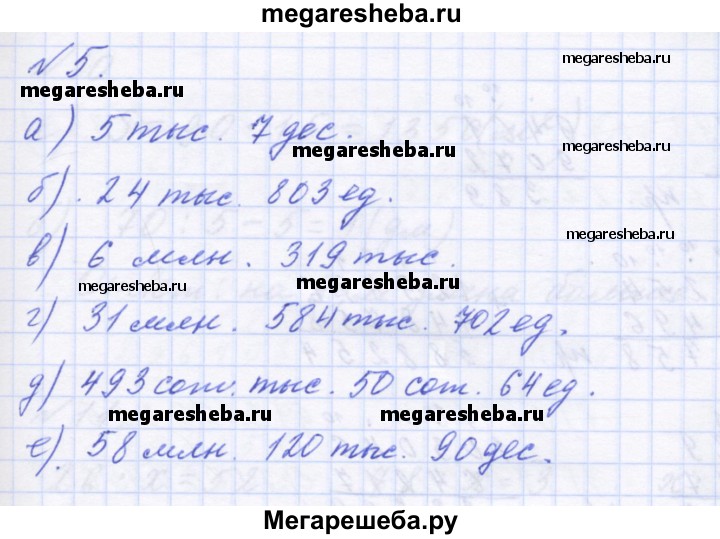 megaresheba.ru
№5.
megaresheba.ru
megaresheba.ru
а) 5 тыс. 7 дес.
megaresheba.ru
б). 24 тыс. 803 ед.
megaresheba.ru
в) 6 млн. 319 тыс.
megaresheba.ru
megaresheba.ru
г) 31 млн. 584 тыс. 702 ед.
megaresheba.ru
д) 493 сот. тыс. 50 сот. 64 ед.
megaresheba.ru megaresheba.ru
е). 58 млн. 120 тыс. 90 дес.
Мегарешеба.ру